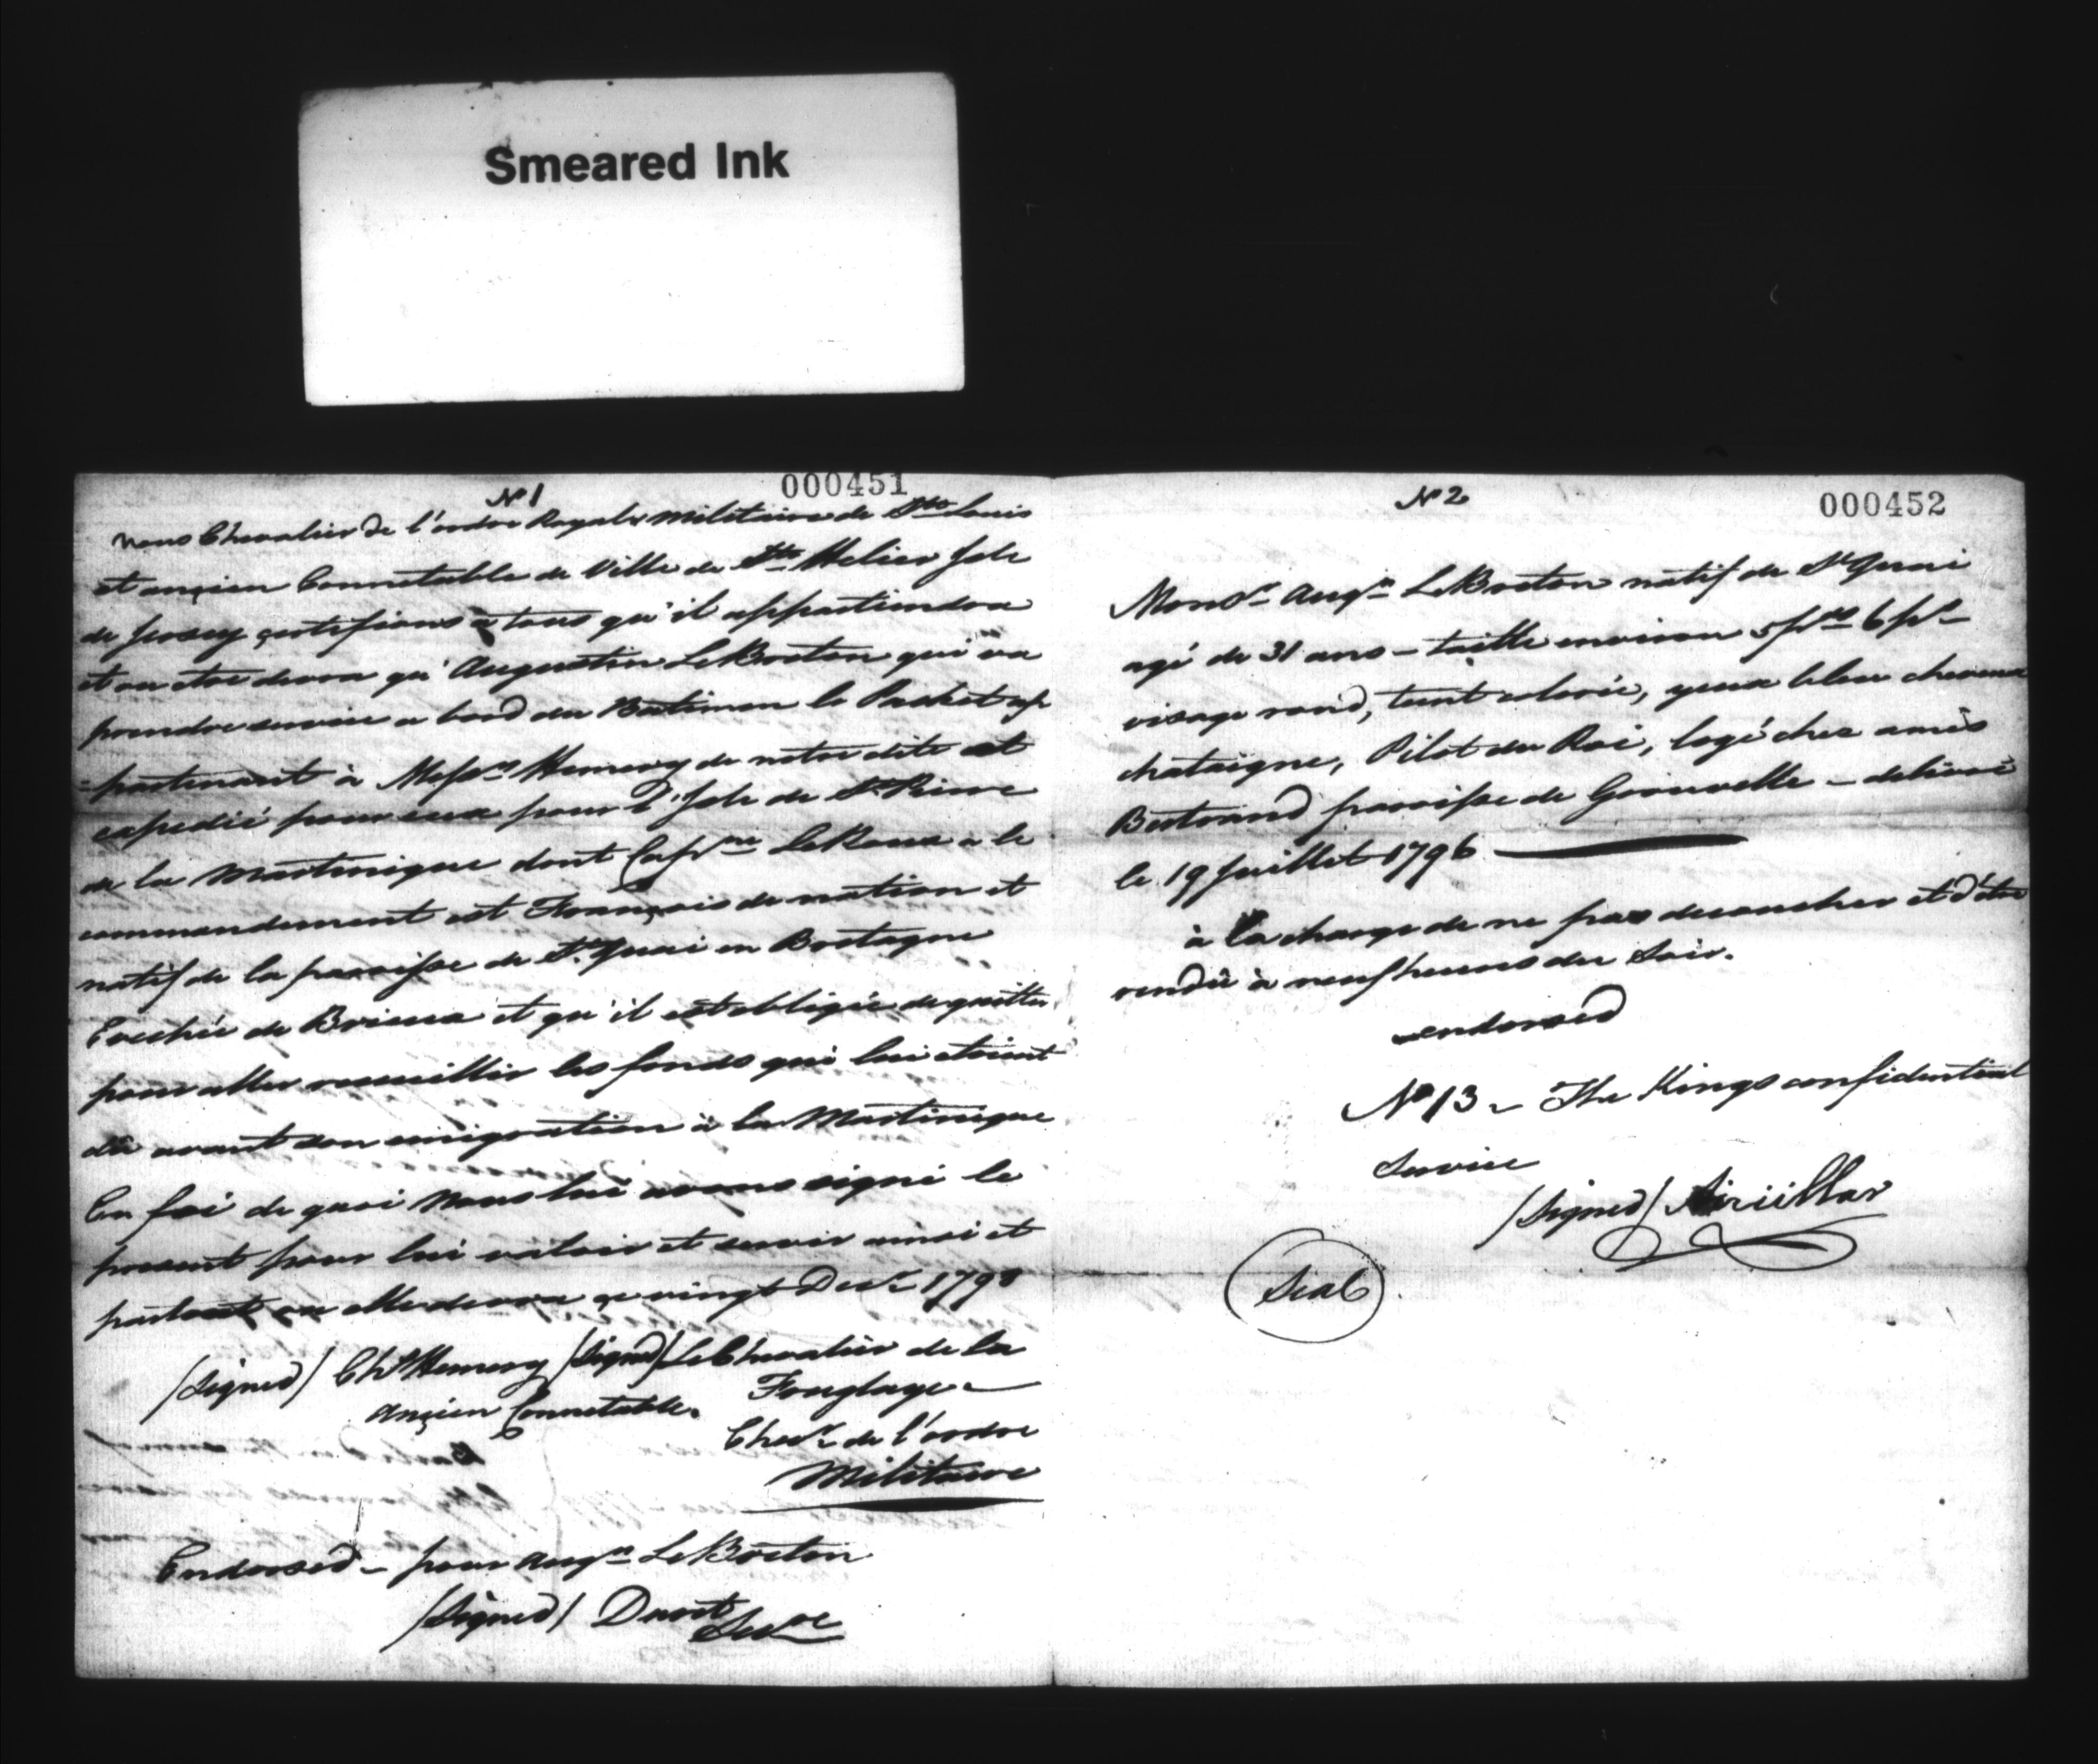 Smeared Ink
000451
Nº 1
Nous Chevalier de l'ordre Royal & Militaire de Sto Louis
et ançien Connetable de Ville de Sto Helier Isle
de Jersey çertifions à tous qu'il appartiendra
et ou etre devra qu'Augustin LeBreton qui va
prendre service a bord du Batimen le Packet ap
=partenant à Messrs Hemery de notre dite
expedié pour eux pour l'Isle de St Pierre
de la Martinique dont Capne LeRoux a le
commandement est François de nation et
natif de la paroisse de St Quai en Bretagne
Evechée de Brieux et qu'il est obligée de quitter
pour aller recueillir les fonds qui lui etoient
dû avant son emigration à la Martinique
En foi de quoi Nous lui avons signé le
present pour lui valoir et servir ainsi et
partout ou elle devra çe vingt Decr 1798
/Signed/ Chs Hemery /Signed/ Le Chevalier de la
Ançien Connetable. Fouglaye
Chevr de l'ordre
Militaire
Endorsed – pour Augn LeBreton
/Signed/ Durot Secre
Nº 2
000452
Monsr Augn LeBreton natif de St Quai
agé de 31 ans – taille environ 5 pds 6 pes
visage rond, teint colorié, yeux bleu cheveux
chataigne, Pilot du Roi, logé chez amis
Bertrand paroisse de Grouvelle – delivré
le 19 Juillet 1796
à la charge de ne pas decoucher et d'être
rendû à neuf heures du Soir.
endorsed
Nº 13 – The Kings confidential
Service
/Signed/
Seal